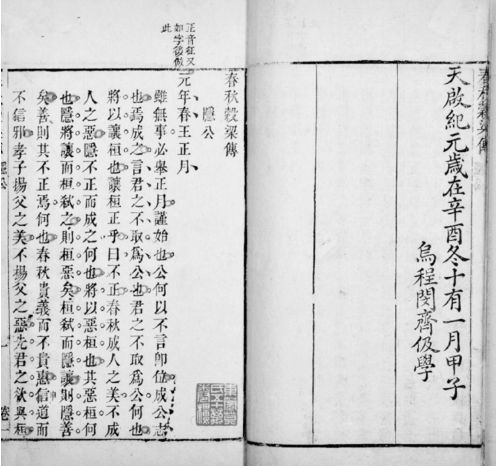 春秋穀梁傳
天啟紀元歲在辛酉冬十有一月甲子
烏程閔齊伋學
春秋穀梁傳
隱公
正音征又
如字後倣
此
元年春王正月
雖無事必舉正月謹始也公何以不言即位成公志
也焉成之言君之不取為公也君之不取為公何也
將以讓桓也讓桓正乎曰不正春秋成人之美不成
人之惡隱不正而成之何也將以惡桓也其惡桓何
也隱將讓而桓弒之則桓惡矣桓弒而隱讓則隱善
矣善則其不正焉何也春秋貴義而不貴惠信道而
不信邪孝子揚父之美不揚父之惡先君之欲與桓